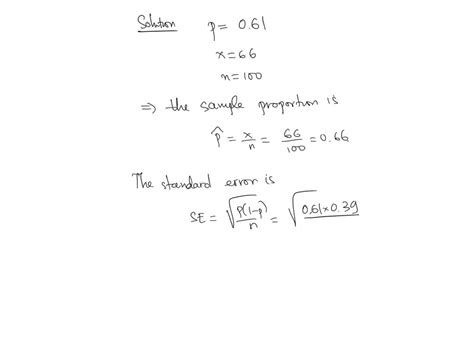 Solution p = 0.61
x = 66
n = 100
⇒ the sample proportion is
p̂ = x/n = 66/100 = 0.66
The standard error is
SE = √(p(1-p)/n) = √(0.61×0.39